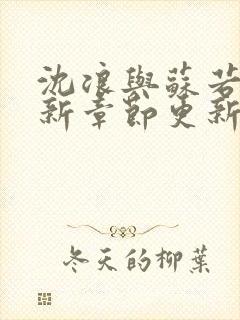 沈浪與蘇若
新章節更新
冬天的柳葉